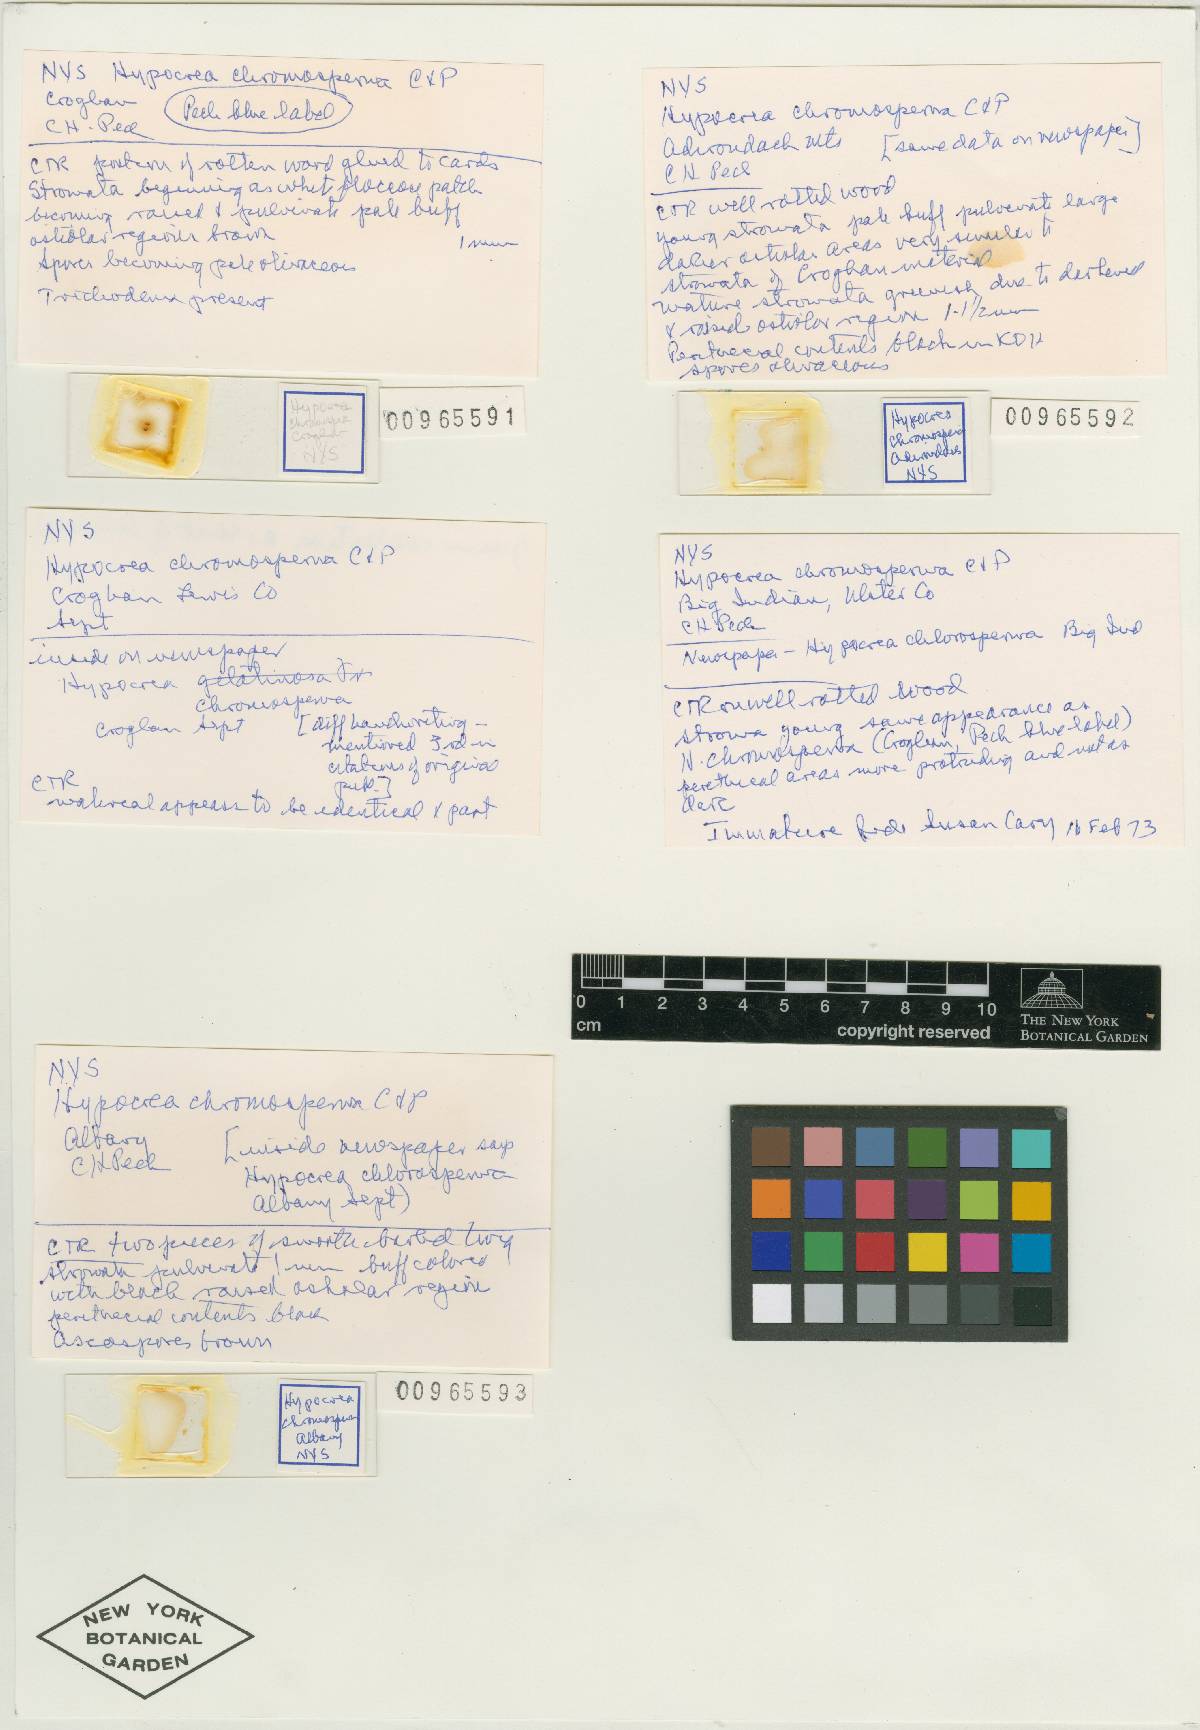 NYS Hypocrea chromosperma C&P
Croghan
Peck blue label
CH. Peck
CTR portion of rotten wood glued to cards
Stromata beginning as white floccose patch
becoming raised & pulvinate pale buff
ostiolar region brown
1 mm
Spores becoming pale olivaceous
Trichoderma present
Hypocrea
chromosperma
Croghan
NYS
00965591
NYS
Hypocrea chromosperma C&P
Adirondack Mts [same data on newspaper]
CH Peck
CTR well rotted wood
young stromata pale buff pulvinate large
darker ostiolar areas very similar to
stromata of Croghan material
mature stromata greenish due to darkened
& raised ostiolar region 1-1 1/2 mm
Perithecial contents black in KOH
spores olivaceous
Hypocrea
chromosperma
Adirondacks
NYS
00965592
NYS
Hypocrea chromosperma C&P
Croghan Lewis Co
Sept
inside on newspaper
Hypocrea gelatinosa Fr
chromosperma
Croghan Sept [diff handwriting -
mentioned 3rd in
citations of original
pub.]
CTR
material appears to be identical & part
NYS
Hypocrea chromosperma C&P
Big Indian, Ulster Co
CH Peck
Newspaper - Hypocrea chlorosperma Big Ind
CTR on well rotted wood
stroma young same appearance as
H. chromosperma (Croghan, Peck blue label)
perithecial areas more protruding and not as
dark
Immature fide Susan Cary 16 Feb 73
0 1 2 3 4 5 6 7 8 9 10
cm
copyright reserved
THE NEW YORK
BOTANICAL GARDEN
NYS
Hypocrea chromosperma C&P
Albany [inside newspaper says
CH Peck
Hypocrea chlorosperma
Albany Sept)
CTR two pieces of smooth barked twig
stromata pulvinate 1 mm buff colored
with black raised ostiolar region
perithecial contents black
Ascospores brown
Hypocrea
chromosperma
Albany
NYS
00965593
NEW YORK
BOTANICAL
GARDEN